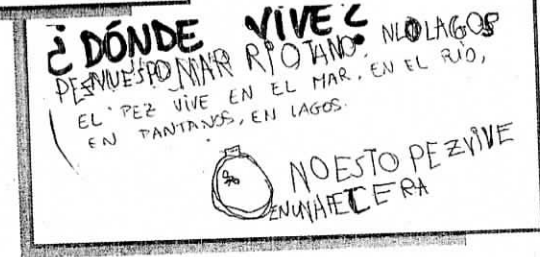 ¿DÓNDE VIVE?
PENUESPO MAR RIOTANO. NLOLAGOS
EL PEZ VIVE EN EL MAR, EN EL RIO,
EN PANTANOS, EN LAGOS.
NOESTO PEZVIVE
ENUNA ECERA